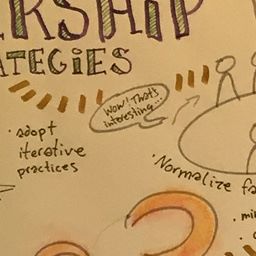 ERSHIP
ATEGIES
Wow! That's
interesting...
• adopt
iterative
practices
• Normalize fa
• mi